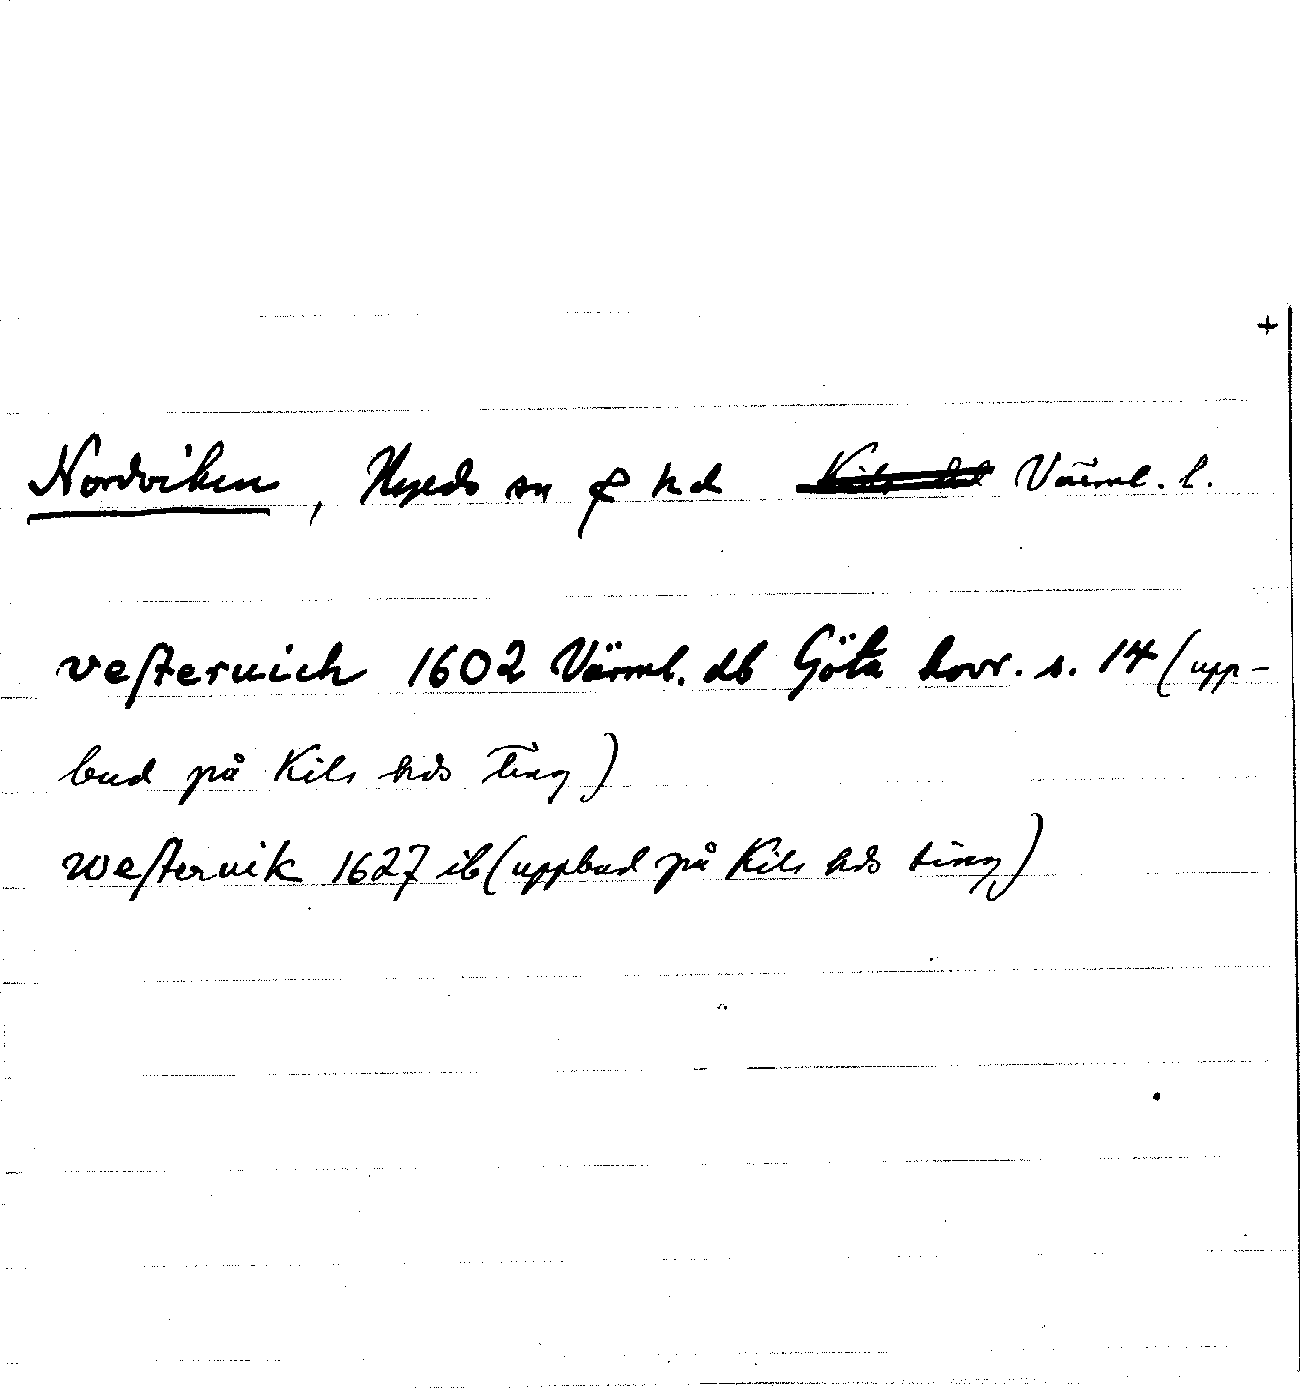 +
Nordviken, Nyeds sn & hd Kils hd Värml. l.
vesterwich 1602 Värml. db Göta hovr. s. 14 (upp-
bud på Kils hds ting)
westerwik 1627 ib (uppbud på Kils hds ting)